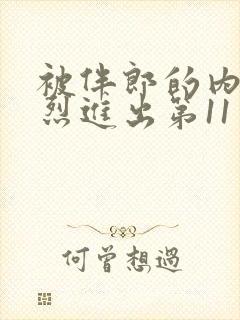 被伴郎的内
烈进出第11
何曾想過